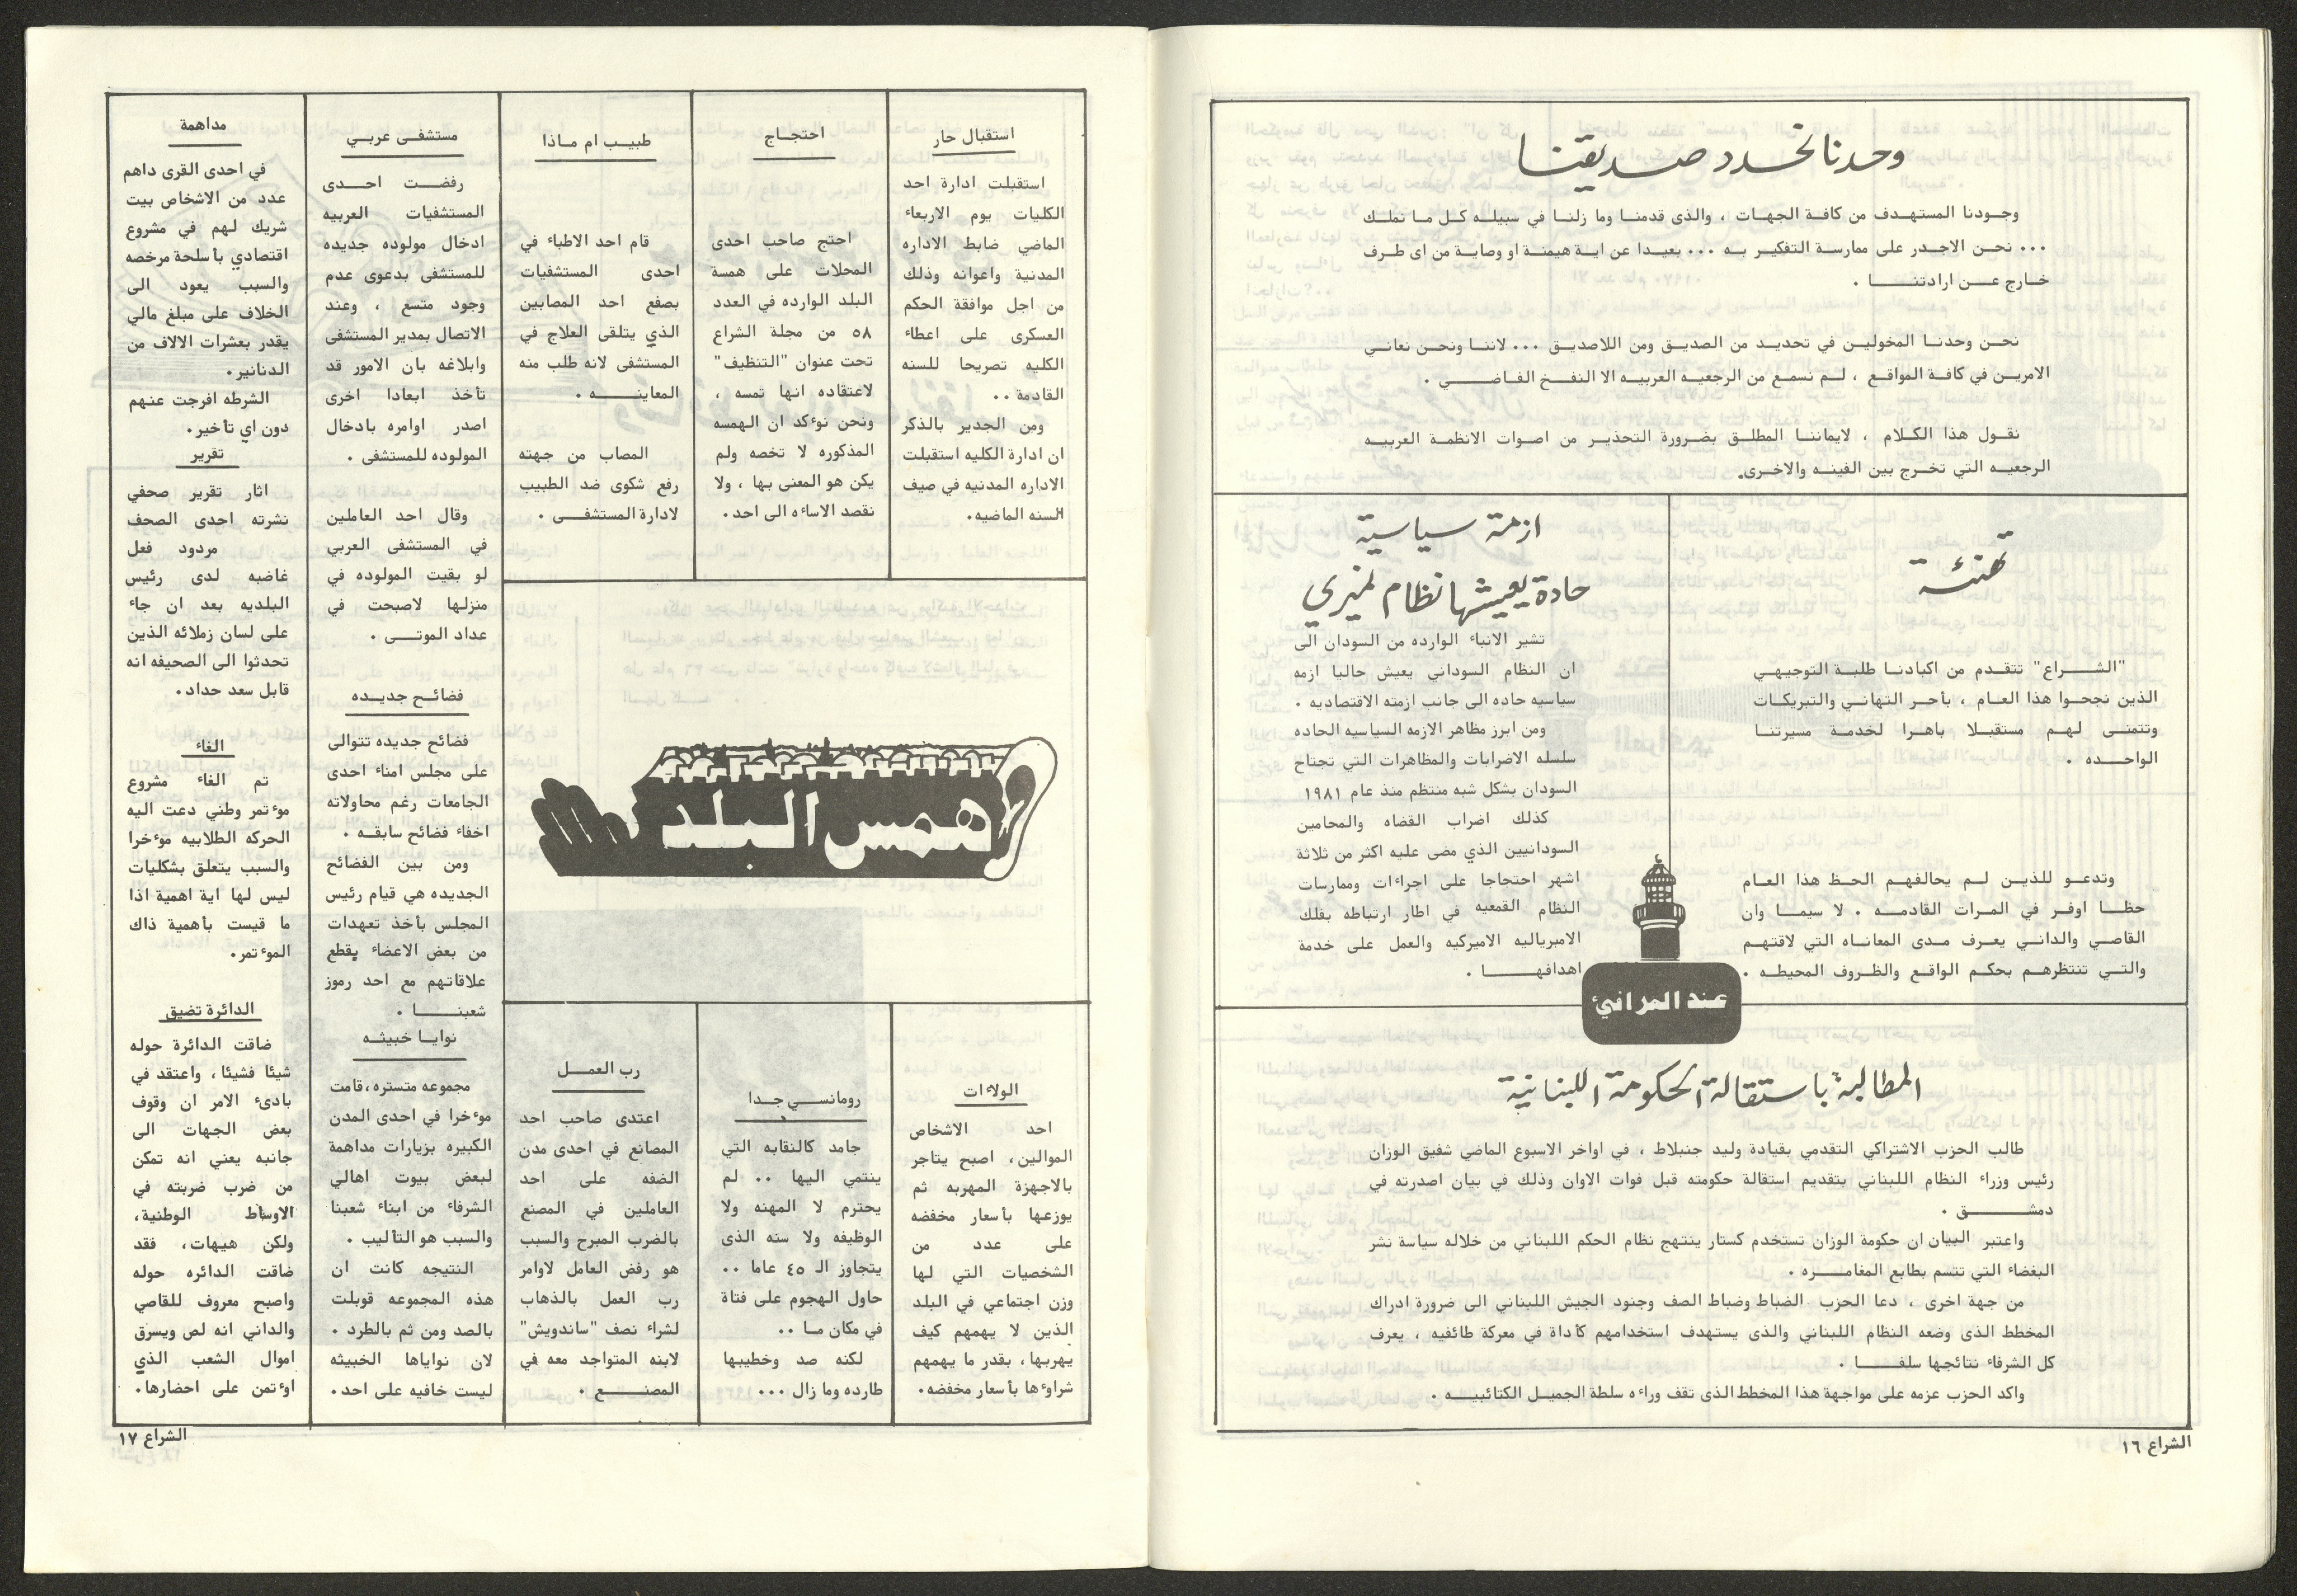 وحدنا نحدد صديقنا
وجودنا المستهدف من كافة الجهات ، والذى قدمنا وما زلنا في سبيله كل ما نملك
... نحن الاجدر على ممارسة التفكير به ... بعيدا عن اية هيمنة او وصاية من اى طرف
خارج عن ارادتنا .
نحن وحدنا المخولين في تحديد من الصديق ومن اللاصديق ... لاننا ونحن نعاني
الامرين في كافة المواقع ، لم نسمع من الرجعيه العربيه الا النفخ الفاضي .
نقول هذا الكلام ، لايماننا المطلق بضرورة التحذير من اصوات الانظمة العربيه
الرجعيه التي تخرج بين الفينه والاخرى.
تهنئة
"الشراع" تتقدم من اكبادنا طلبة التوجيهي
الذين نجحوا هذا العام ، بأحر التهاني والتبريكات
وتتمنى لهم مستقبلا باهرا لخدمة مسيرتنا
الواحده .
وتدعو للذين لم يحالفهم الحظ هذا العام
حظا اوفر في المرات القادمه . لا سيما وان
القاصي والداني يعرف مدى المعاناه التي لاقتهم
والتي تنتظرهم بحكم الواقع والظروف المحيطه .
ازمة سياسية
حادة يعيشها نظام نميري
تشير الانباء الوارده من السودان الى
ان النظام السوداني يعيش حاليا ازمه
سياسيه حاده الى جانب ازمته الاقتصاديه .
ومن ابرز مظاهر الازمه السياسيه الحاده
سلسله الاضرابات والمظاهرات التي تجتاح
السودان بشكل شبه منتظم منذ عام ١٩٨١
كذلك اضراب القضاه والمحامين
السودانيين الذي مضى عليه اكثر من ثلاثة
اشهر احتجاجا على اجراءات وممارسات
النظام القمعيه في اطار ارتباطه بفلك
الامبرياليه الاميركيه والعمل على خدمة
اهدافها .
عند المرانئ
المطالبة باستقالة الحكومة اللبنانية
طالب الحزب الاشتراكي التقدمي بقيادة وليد جنبلاط ، في اواخر الاسبوع الماضي شفيق الوزان
رئيس وزراء النظام اللبناني بتقديم استقالة حكومته قبل فوات الاوان وذلك في بيان اصدرته في
دمشق .
واعتبر البيان ان حكومة الوزان تستخدم كستار ينتهج نظام الحكم اللبناني من خلاله سياسة نشر
البغضاء التي تتسم بطابع المغامره .
من جهة اخرى ، دعا الحزب الضباط وضباط الصف وجنود الجيش اللبناني الى ضرورة ادراك
المخطط الذى وضعه النظام اللبناني والذى يستهدف استخدامهم كأداة في معركة طائفيه ، يعرف
كل الشرفاء نتائجها سلفا .
واكد الحزب عزمه على مواجهة هذا المخطط الذى تقف وراءه سلطة الجميل الكتائبيه .
الشراع ١٦
استقبال حار
استقبلت ادارة احد
الكليات يوم الاربعاء
الماضي ضابط الاداره
المدنية واعوانه وذلك
من اجل موافقة الحكم
العسكرى على اعطاء
الكليه تصريحا للسنه
القادمة ..
ومن الجدير بالذكر
ان ادارة الكليه استقبلت
الاداره المدنيه في صيف
السنه الماضيه.
احتجاج
احتج صاحب احدى
المحلات على همسة
البلد الوارده في العدد
٥٨ من مجلة الشراع
تحت عنوان "التنظيف"
لاعتقاده انها تمسه ،
ونحن نوءكد ان الهمسه
المذكوره لا تخصه ولم
يكن هو المعنى بها ، ولا
نقصد الاساءه الى احد.
طبيب ام ماذا
قام احد الاطباء في
احدى المستشفيات
بصفع احد المصابين
الذي يتلقى العلاج في
المستشفى لانه طلب منه
المعاينه .
المصاب من جهته
رفع شكوى ضد الطبيب
لادارة المستشفى .
همس البلد
الولاءات
احد الاشخاص
الموالين، اصبح يتاجر
بالاجهزة المهربه ثم
يوزعها بأسعار مخفضه
على عدد من
الشخصيات التي لها
وزن اجتماعي في البلد
الذين لا يهمهم كيف
يهربها، بقدر ما يهمهم
شراوءها بأسعار مخفضه.
رومانسي جدا
جامد كالنقابه التي
ينتمي اليها .. لم
يحترم لا المهنه ولا
الوظيفه ولا سنه الذى
يتجاوز الـ ٤٥ عاما ..
حاول الهجوم على فتاة
في مكان ما ..
لكنه صد وخطيبها
طارده وما زال ...
رب العمل
اعتدى صاحب احد
المصانع في احدى مدن
الضفه على احد
العاملين في المصنع
بالضرب المبرح والسبب
هو رفض العامل لاوامر
رب العمل بالذهاب
لشراء نصف "ساندويش"
لابنه المتواجد معه في
المصنع .
مستشفى عربي
رفضت احدى
المستشفيات العربيه
ادخال مولوده جديده
للمستشفى بدعوى عدم
وجود متسع ، وعند
الاتصال بمدير المستشفى
وابلاغه بان الامور قد
تأخذ ابعادا اخرى
اصدر اوامره بادخال
المولوده للمستشفى .
وقال احد العاملين
في المستشفى العربي
لو بقيت المولوده في
منزلها لاصبحت في
عداد الموتى .
فضائح جديده
فضائح جديده تتوالى
على مجلس امناء احدى
الجامعات رغم محاولاته
اخفاء فضائح سابقه .
ومن بين الفضائح
الجديده هي قيام رئيس
المجلس بأخذ تعهدات
من بعض الاعضاء بقطع
علاقاتهم مع احد رموز
شعبنا .
نوايا خبيثه
مجموعه متستره، قامت
موءخرا في احدى المدن
الكبيره بزيارات مداهمة
لبعض بيوت اهالي
الشرفاء من ابناء شعبنا
والسبب هو التأليب .
النتيجه كانت ان
هذه المجموعه قوبلت
بالصد ومن ثم بالطرد .
لان نواياها الخبيثه
ليست خافيه على احد.
مداهمة
في احدى القرى داهم
عدد من الاشخاص بيت
شريك لهم في مشروع
اقتصادي بأسلحة مرخصه
والسبب يعود الى
الخلاف على مبلغ مالي
يقدر بعشرات الالاف من
الدنانير.
الشرطه افرجت عنهم
دون اي تأخير.
تقرير
اثار تقرير صحفي
نشرته احدى الصحف
مردود فعل
غاضبه لدى رئيس
البلديه بعد ان جاء
على لسان زملائه الذين
تحدثوا الى الصحيفه انه
قابل سعد حداد.
الغاء
تم الغاء مشروع
موءتمر وطني دعت اليه
الحركه الطلابيه موءخرا
والسبب يتعلق بشكليات
ليس لها اية اهمية اذا
ما قيست بأهمية ذاك
الموءتمر.
الدائرة تضيق
ضاقت الدائرة حوله
شيئا فشيئا، واعتقد في
بادىء الامر ان وقوف
بعض الجهات الى
جانبه يعني انه تمكن
من ضرب ضربته في
الاوساط الوطنية،
ولكن هيهات، فقد
ضاقت الدائره حوله
واصبح معروف للقاصي
والداني انه لص ويسرق
اموال الشعب الذي
اوءتمن على احضارها.
الشراع ١٧